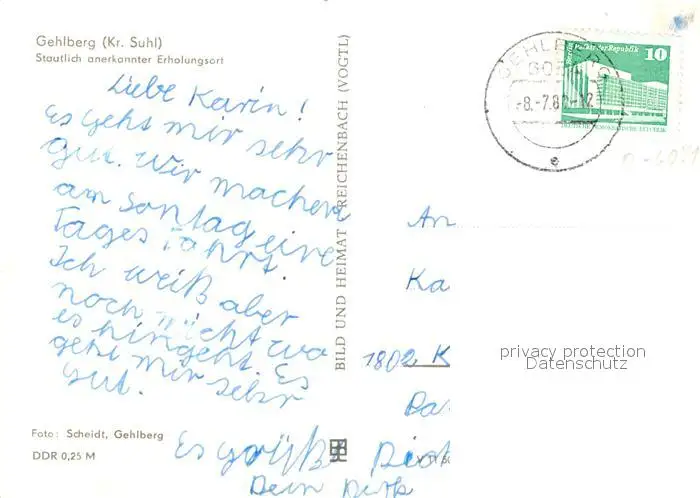 Gehlberg (Kr. Suhl)
Staatlich anerkannter Erholungsort
Liebe Karin!
Es geht mir sehr
gut. Wir machen
am Sontag eine
Tages fahrt.
Ich weiß aber
noch nicht wo
es hingeht. Es
geht mir sehr
gut.
Es grüßt Dich
Dein Dirk
Foto: Scheidt, Gehlberg
DDR 0,25 M
BILD UND HEIMAT REICHENBACH (VOGTL)
Berlin Palast der Republik 10
DEUTSCHE DEMOKRATISCHE REPUBLIK
GEHLBERG
-8.-7.8
e
An
Ka
1802 K
privacy protection
Datenschutz